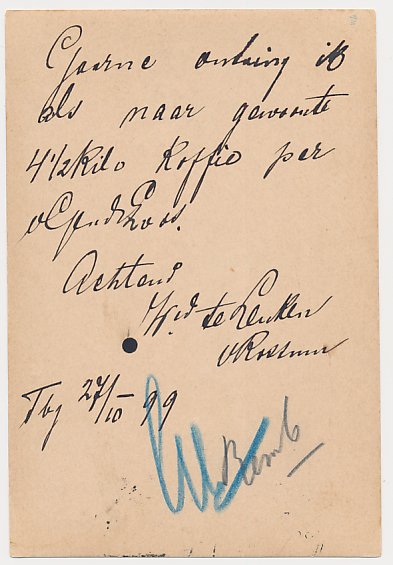 Gaarne ontving ik
als naar gewoonte
4 1/2 Kilo Koffie per
v Gend & Loos.
Achtend
Wed te
v Rossum
Tbg 27/10 - 99